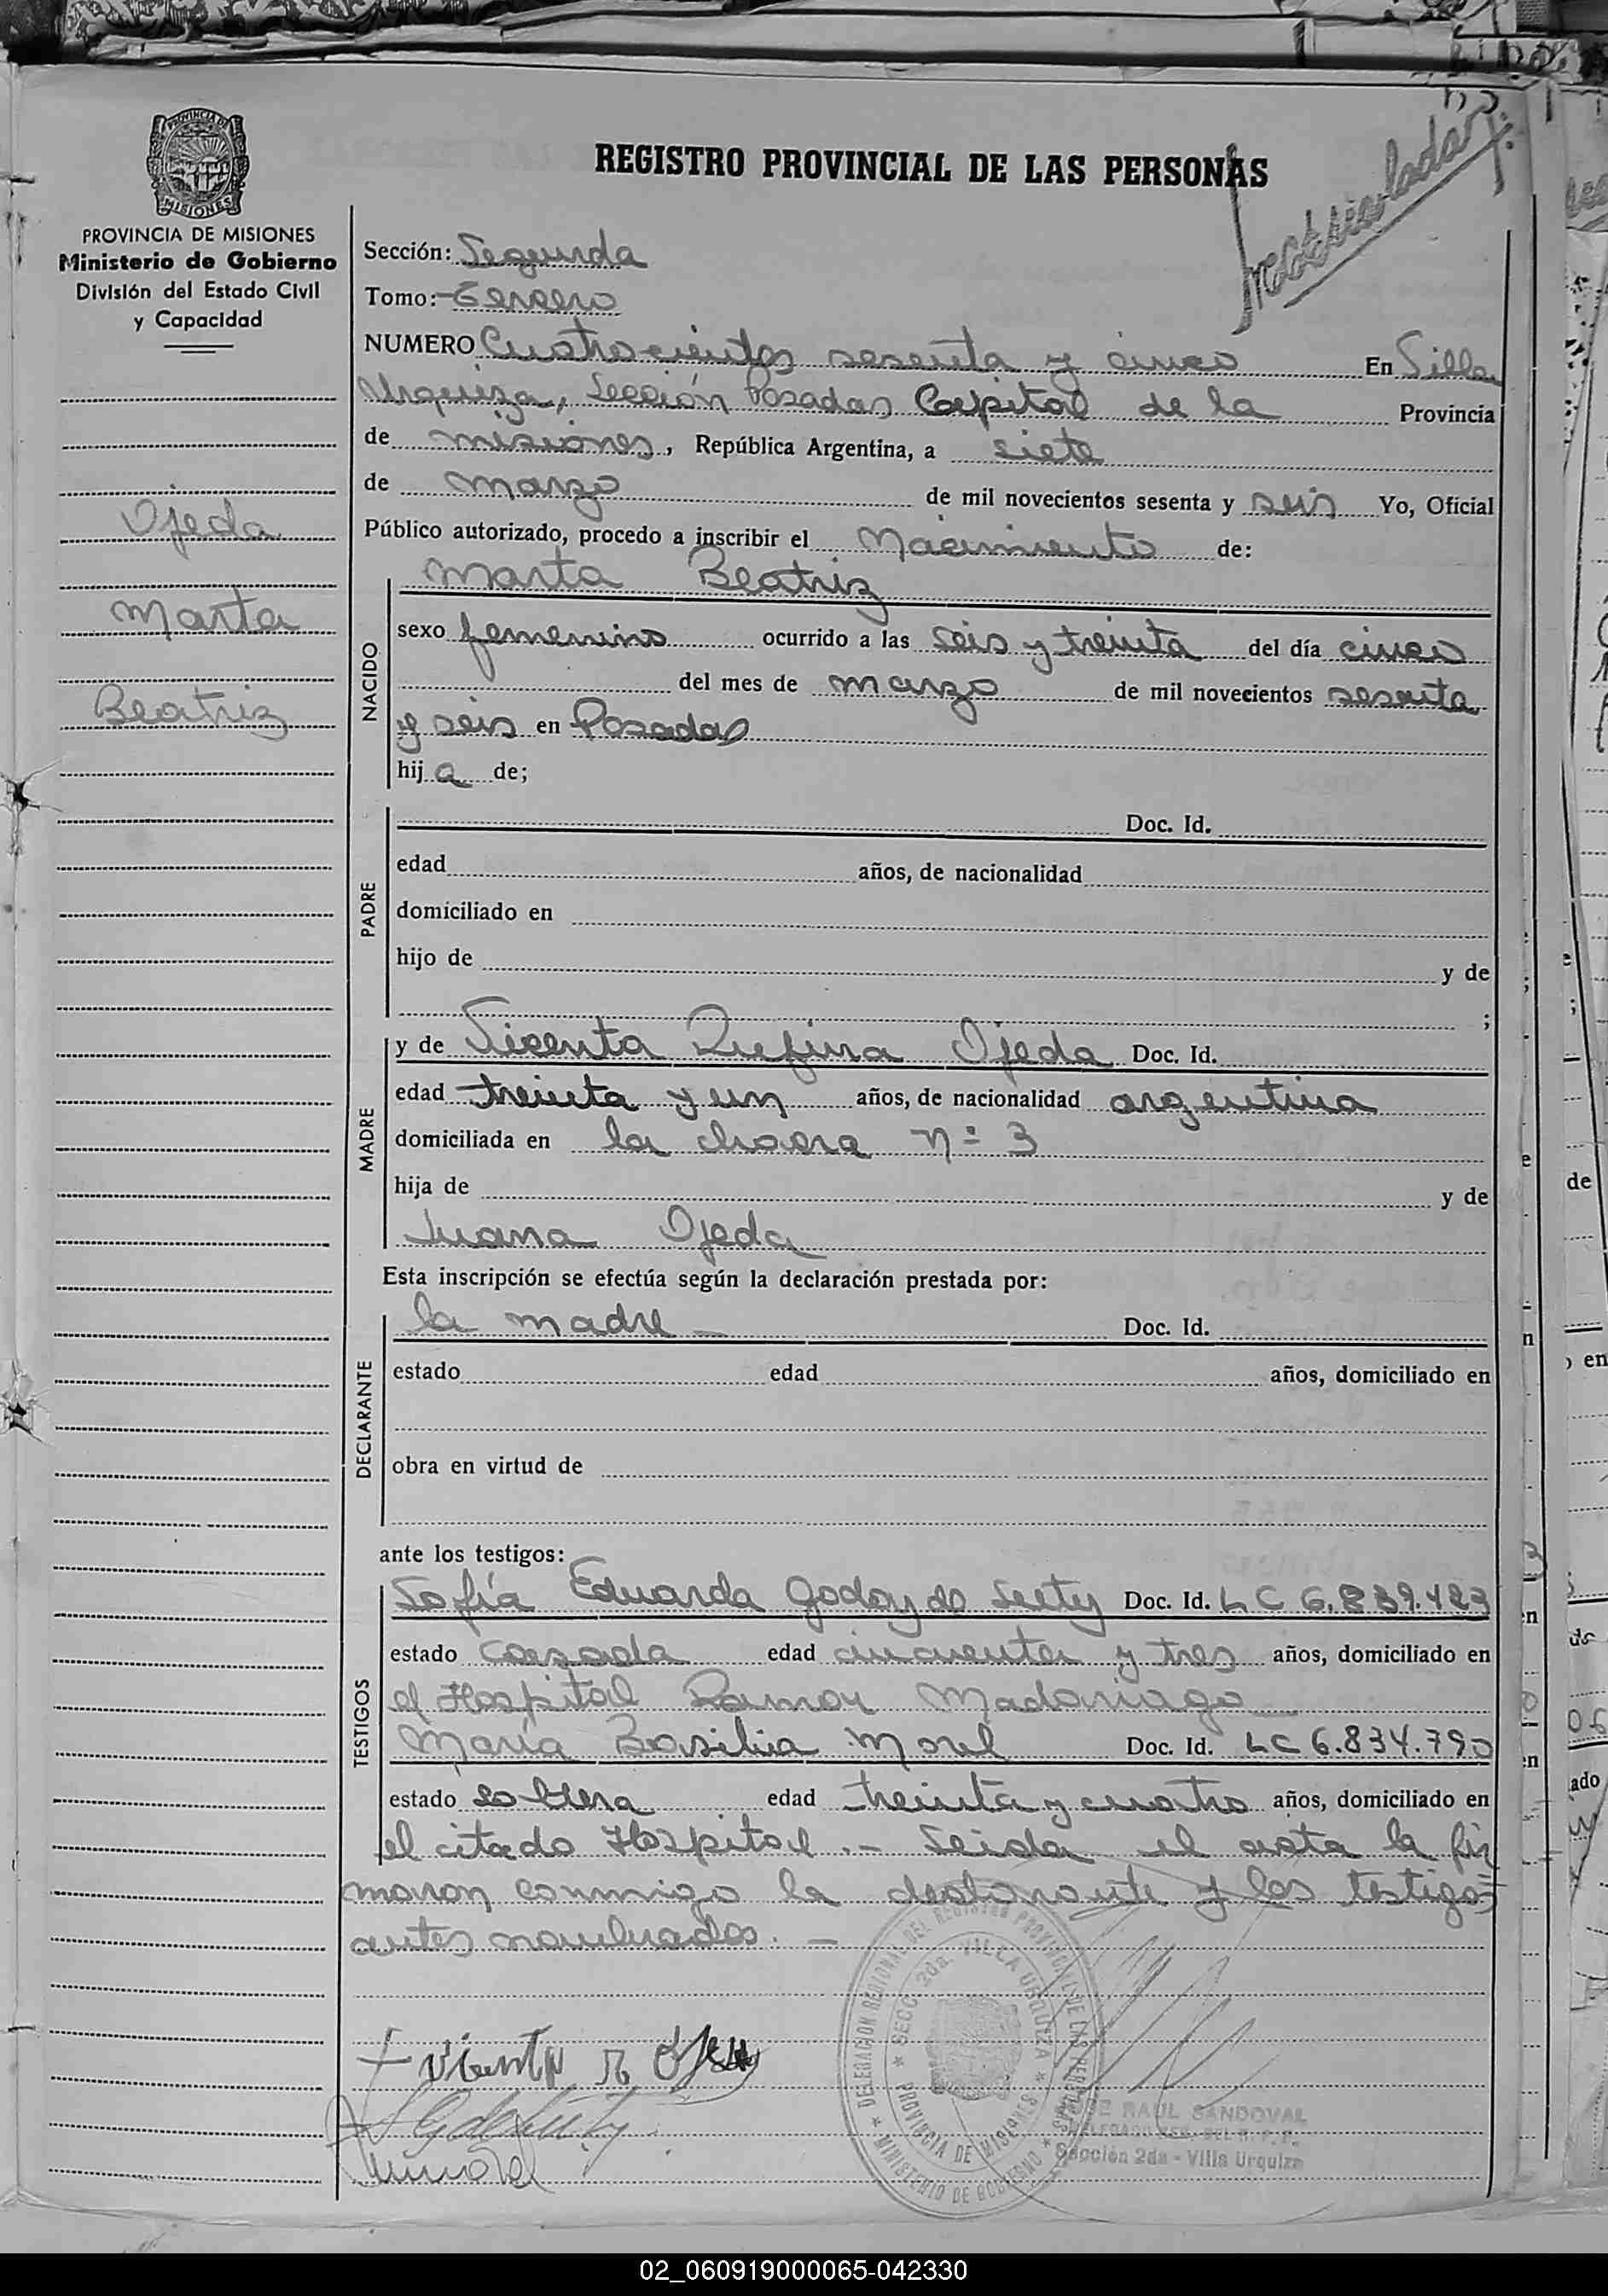 PROVINCIA DE MISIONES
PROVINCIA DE MISIONES
Ministerio de Gobierno
División del Estado Civil
y Capacidad
Ojeda
Marta
Beatriz
REGISTRO PROVINCIAL DE LAS PERSONAS
Sección: Segunda
Tomo: Tercero
NUMERO Cuatrocientos sesenta y cinco En Villa
Urquiza, Sección Posadas Capital de la Provincia
de misiones, República Argentina, a siete
de marzo de mil novecientos sesenta y seis Yo, Oficial
Público autorizado, procedo a inscribir el Nacimiento de:
Marta Beatriz
NACIDO
sexo femenino ocurrido a las seis y treinta del día cinco
del mes de marzo de mil novecientos sesenta
y seis en Posadas
hija de;
PADRE
Doc. Id.
edad años, de nacionalidad
domiciliado en
hijo de y de
;
MADRE
y de Vicenta Rufina Ojeda Doc. Id.
edad treinta y un años, de nacionalidad argentina
domiciliada en la chacra nº 3
hija de y de
Juana Ojeda
Esta inscripción se efectúa según la declaración prestada por:
DECLARANTE
la madre Doc. Id.
estado edad años, domiciliado en
obra en virtud de
ante los testigos:
TESTIGOS
Sofía Eduarda Godoy de Doc. Id. LC 6.839.423
estado casada edad cincuenta y tres años, domiciliado en
el Hospital Ramon Madariaga
María Basilia Morel Doc. Id. LC 6.834.790
estado soltera edad treinta y cuatro años, domiciliado en
el citado Hospital.- Leida el acta la fir
maron conmigo la declarante y los testigos
antes nombrados. -
Vicenta R Ojeda
DELEGACION REGIONAL DEL REGISTRO PROVINCIAL DE LAS PERSONAS
SECC. 2da. VILLA URQUIZA
PROVINCIA DE MISIONES
MINISTERIO DE GOBIERNO
RAUL SANDOVAL
Sección 2da - Villa Urquiza
02_060919000065-042330